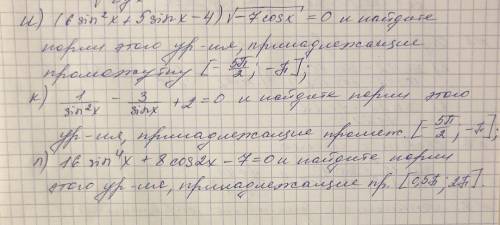 и) (6 sin²x + 5 sinx - 4) √-7cosx = 0 и найдите
корни этого ур-ия, принадлежащие
промежутку [- 5π/2 ; -π];
к) 1/sin²x - 3/sinx + 2 = 0 и найдите корни этого
ур-ия, принадлежащие промеж. [- 5π/2 ; -π];
л) 16 sin⁴x + 8 cos2x - 7 = 0 и найдите корни
этого ур-ия, принадлежащие пр. [0,5π; 2π].